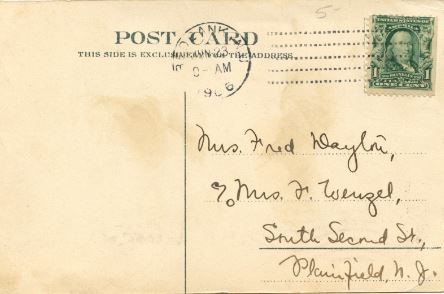 5-
POST CARD
THIS SIDE IS EXCLUSIVELY FOR THE ADDRESS
JUN 23
9- AM
1906
UNITED STATES OF AMERICA
1 1
ONE CENT
Mrs. Fred Dayton,
c/o Mrs. F. Wenzel,
South Second St.,
Plainfield, N. J.